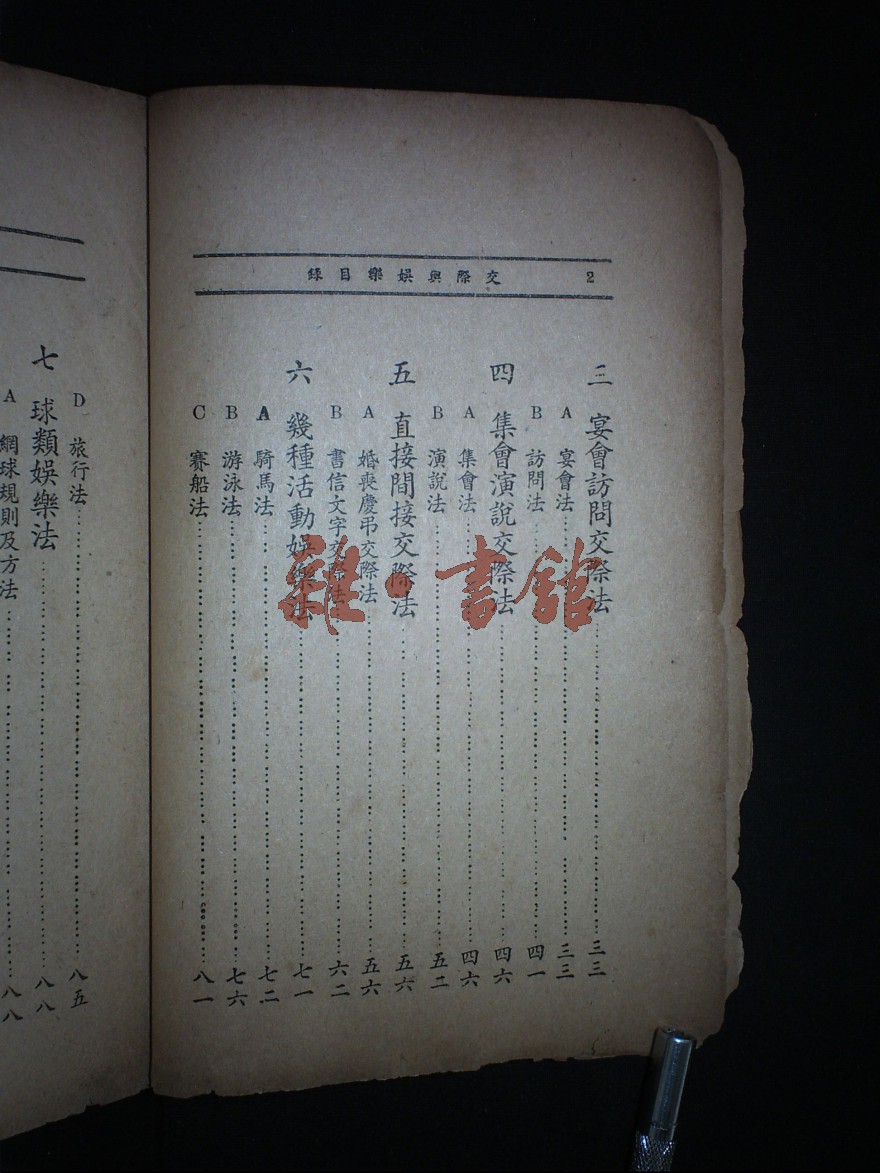 2 交際與娛樂目錄
三 宴會訪問交際法 三三
A 宴會法 三三
B 訪問法 四一
四 集會演說交際法 四六
A 集會法 四六
B 演說法 五二
五 直接間接交際法 五六
A 婚喪慶弔交際法 五六
B 書信文字交際法 六二
六 幾種活動娛樂法 七一
A 騎馬法 七二
B 游泳法 七六
C 賽船法 八一
D 旅行法 八五
七 球類娛樂法 八八
A 網球規則及方法 八八
雜·書館